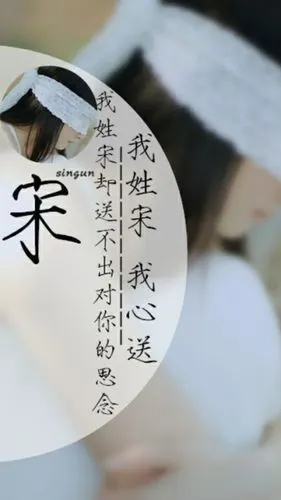 我姓宋 我心送
我姓宋却送不出对你的思念
singun
宋